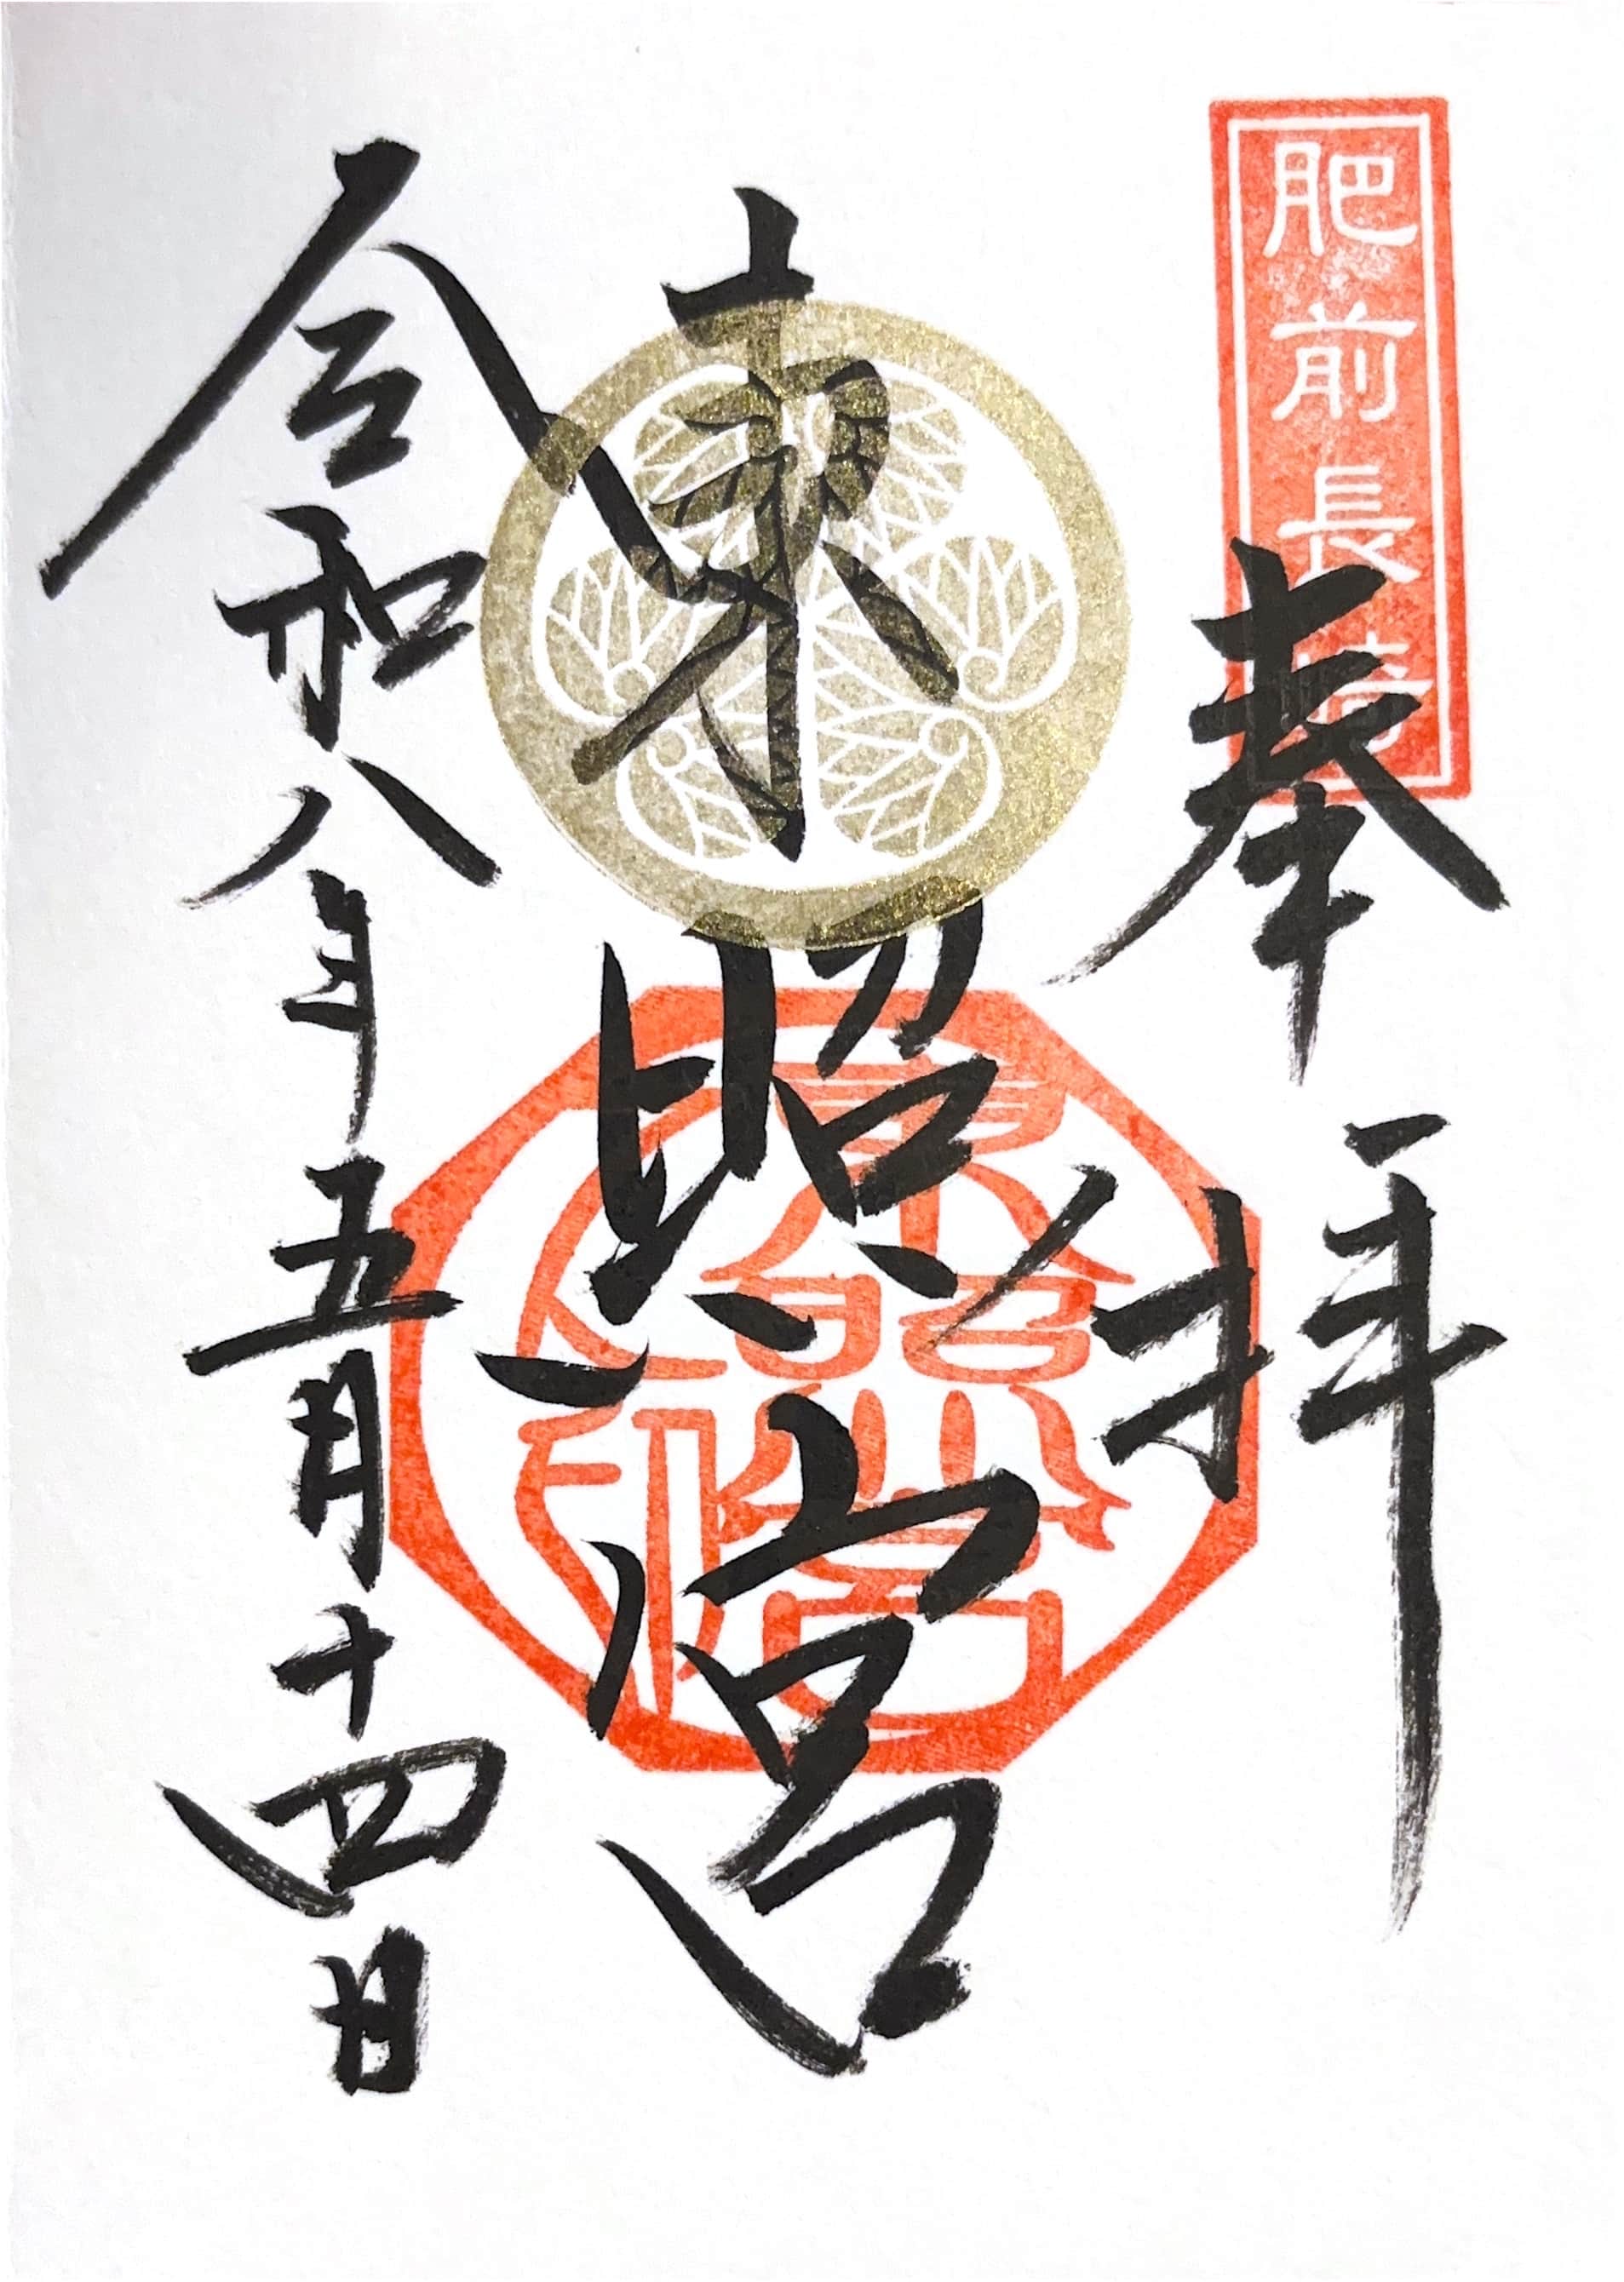 肥前長崎
奉拝
東照宮
東照宮
令和八年五月十四日